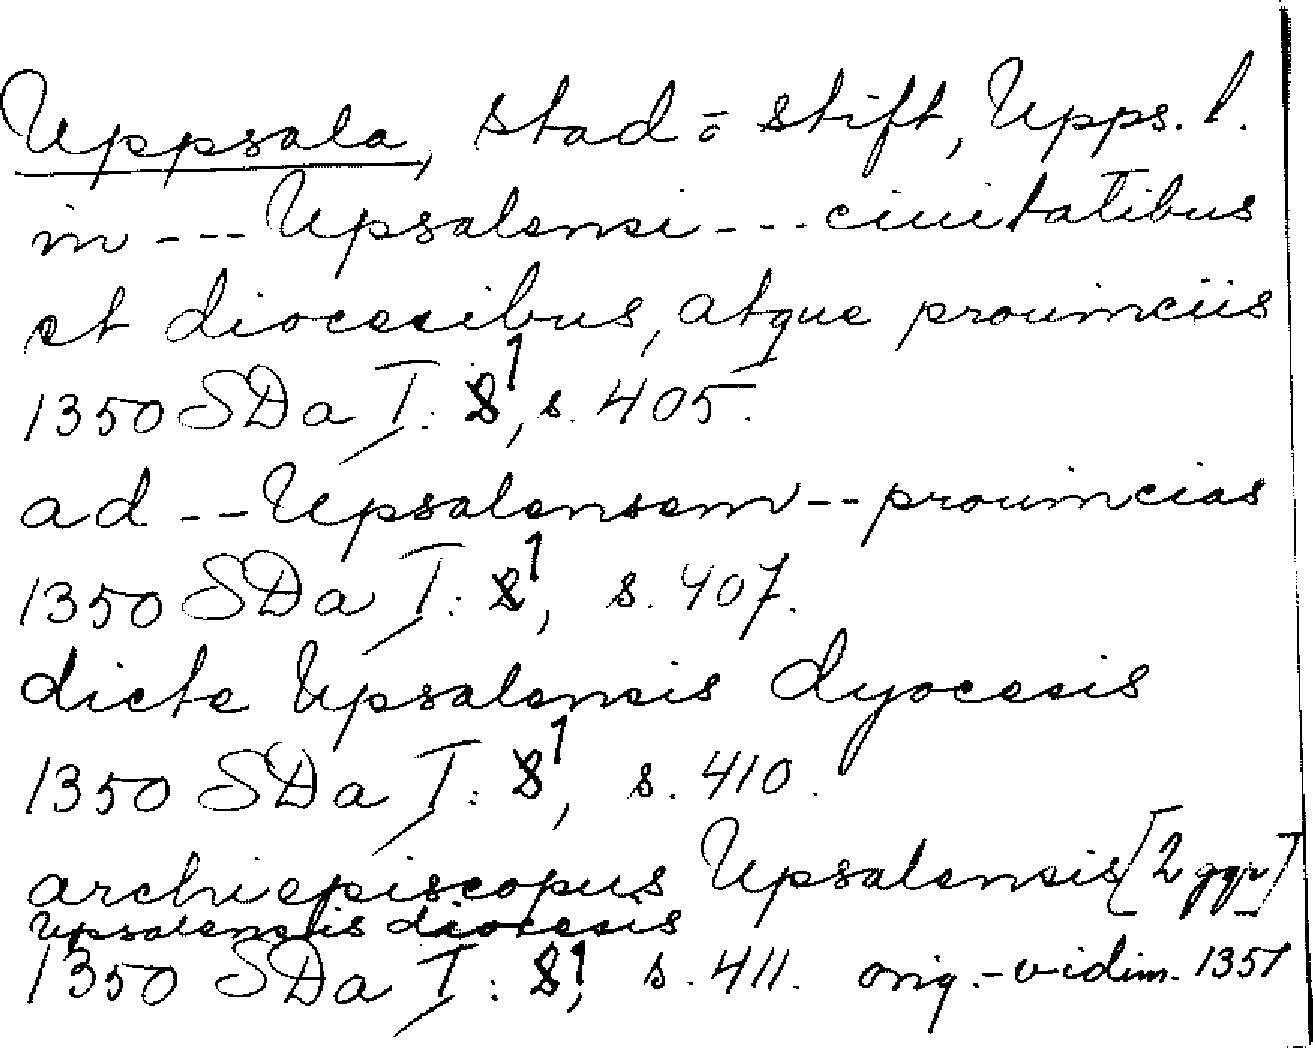 Uppsala, stad o. stift, Upps. l.
in --- Upsalensi --- ciuitatibus
et diocesibus, atque prouinciis
1350 SDa I: 1, s. 405.
ad -- Upsalensem -- prouincias
1350 SDa I: 1, s. 407.
dicte Upsalensis dyocesis
1350 SDa I: 1, s. 410.
archiepiscopus Upsalensis [2 ggr]
Upsalensis diocesis
1350 SDa I: 1, s. 411. orig.-vidim. 1351